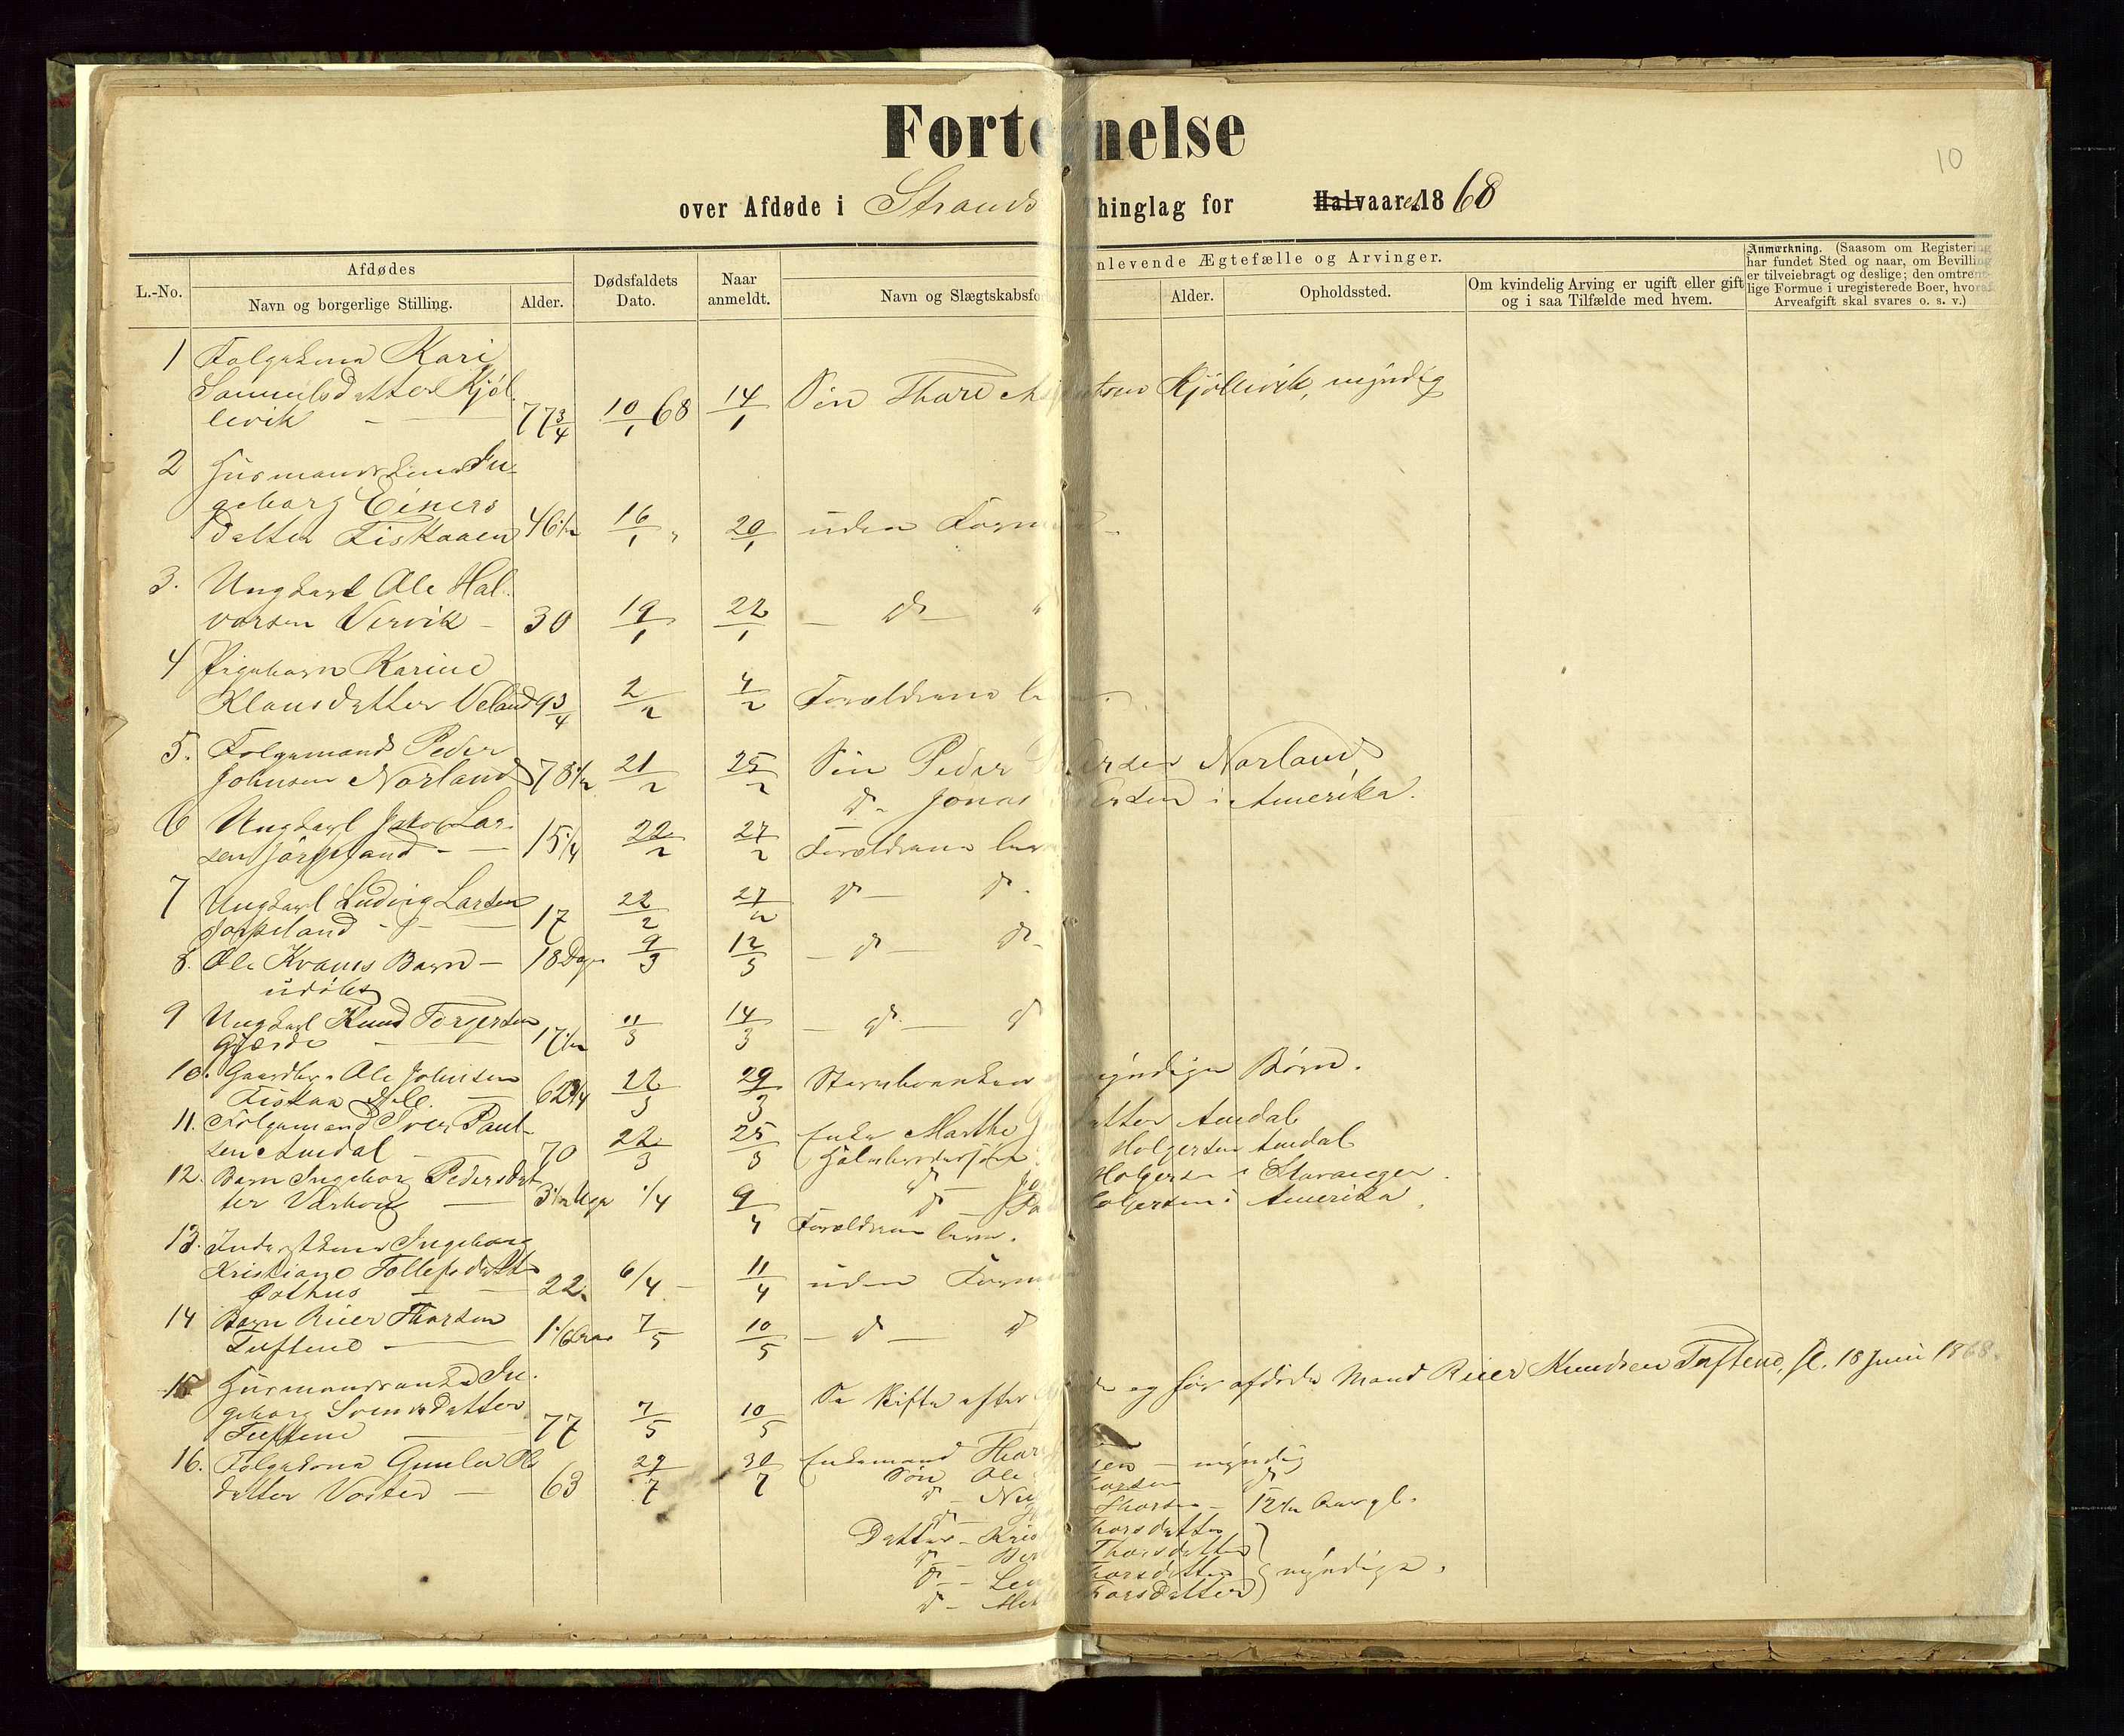 Forte nelse
10
over Afdøde i Strands hinglag for Halvaaret 1868
L.-No.
Afdødes
Navn og borgerlige Stilling.
Alder.
Dødsfaldets Dato.
Naar anmeldt.
nlevende Ægtefælle og Arvinger.
Navn og Slægtskabsfo
Alder.
Opholdssted.
Om kvindelig Arving er ugift eller gift og i saa Tilfælde med hvem.
Anmærkning. (Saasom om Registering
har fundet Sted og naar, om Bevilling
er tilveiebragt og deslige; den omtrent-
lige Formue i uregisterede Boer, hvoraf
Arveafgift skal svares o. s. v.)
1 Folgekona Kari
Samuelsdatter Kjøl-
levik 77 3/4 10/1 68 14/1 Søn Thore Kjøllevik, myndig
2 Huusmandskona In-
geborg Einers
datter Fiskaaen 46 1/2 16/1 20/1 uden Form
3. Ungkarl Ole Hal-
vorsen Vervik 30 19/1 22/1 d
4 Pigebarn Karine
Klausdatter Veland 9 3/4 2/2 4/2 Forældrene le
5. Folgemand Peder
Johnsen Norland 78 1/2 21/2 25/2 Søn Peder ersen Norland
d Jonas ersen i Amerika.
6 Ungkarl Jakob Lar-
sen Jørpeland 15 1/4 22/2 27/2 Forældrene lev
7 Ungkarl Ludvig Larsen
Jørpeland 17 22/2 27/2 d d
8. Ole Kvams Barn 18 Dage 9/3 12/3 d d
udøbt
9 Ungkarl Knud Torgersen
Gjerde 17 1/2 11/3 14/3 d d
10. Gaardbr. Ole Johnsen
Fiskaa 62 3/4 22/3 29/3 Stervboenken yndige Børn.
11. Folgemand Iver Paul-
sen Amdal 70 22/3 25/3 Enke Marthe atter Amdal
Holgersen Amdal
12. Barn Ingeborg Pedersdat-
ter Vasbotten 3 1/2 Uger 1/4 9/4 d Holgersen i Stavanger
d olgersen i Amerika.
Forældrene lever.
13. Inderstkona Ingeborg
Kristiane Tollefsdatter
22 6/4 11/4 uden Form
14 Barn Reier Thorsen
Tuftene 1 1/6 Aar 7/5 10/5 d d
15 Huusmandsenke In-
geborg Svensdatter
Tuftene 77 7/5 10/5 Se Skifte efter og før afdøde Mand Reier Knudsen Tuftene, sl. 18 Juni 1868.
16. Folgekona Gunla Ols
datter Voster 63 29/7 30/7 Enkemand Thor sen myndig
Søn Ole horsen d
d Thorsen 12 1/2 Aar gl.
Datter Kris horsdatter
d Ber Thorsdatter
d Len horsdatter myndige.
d horsdatter